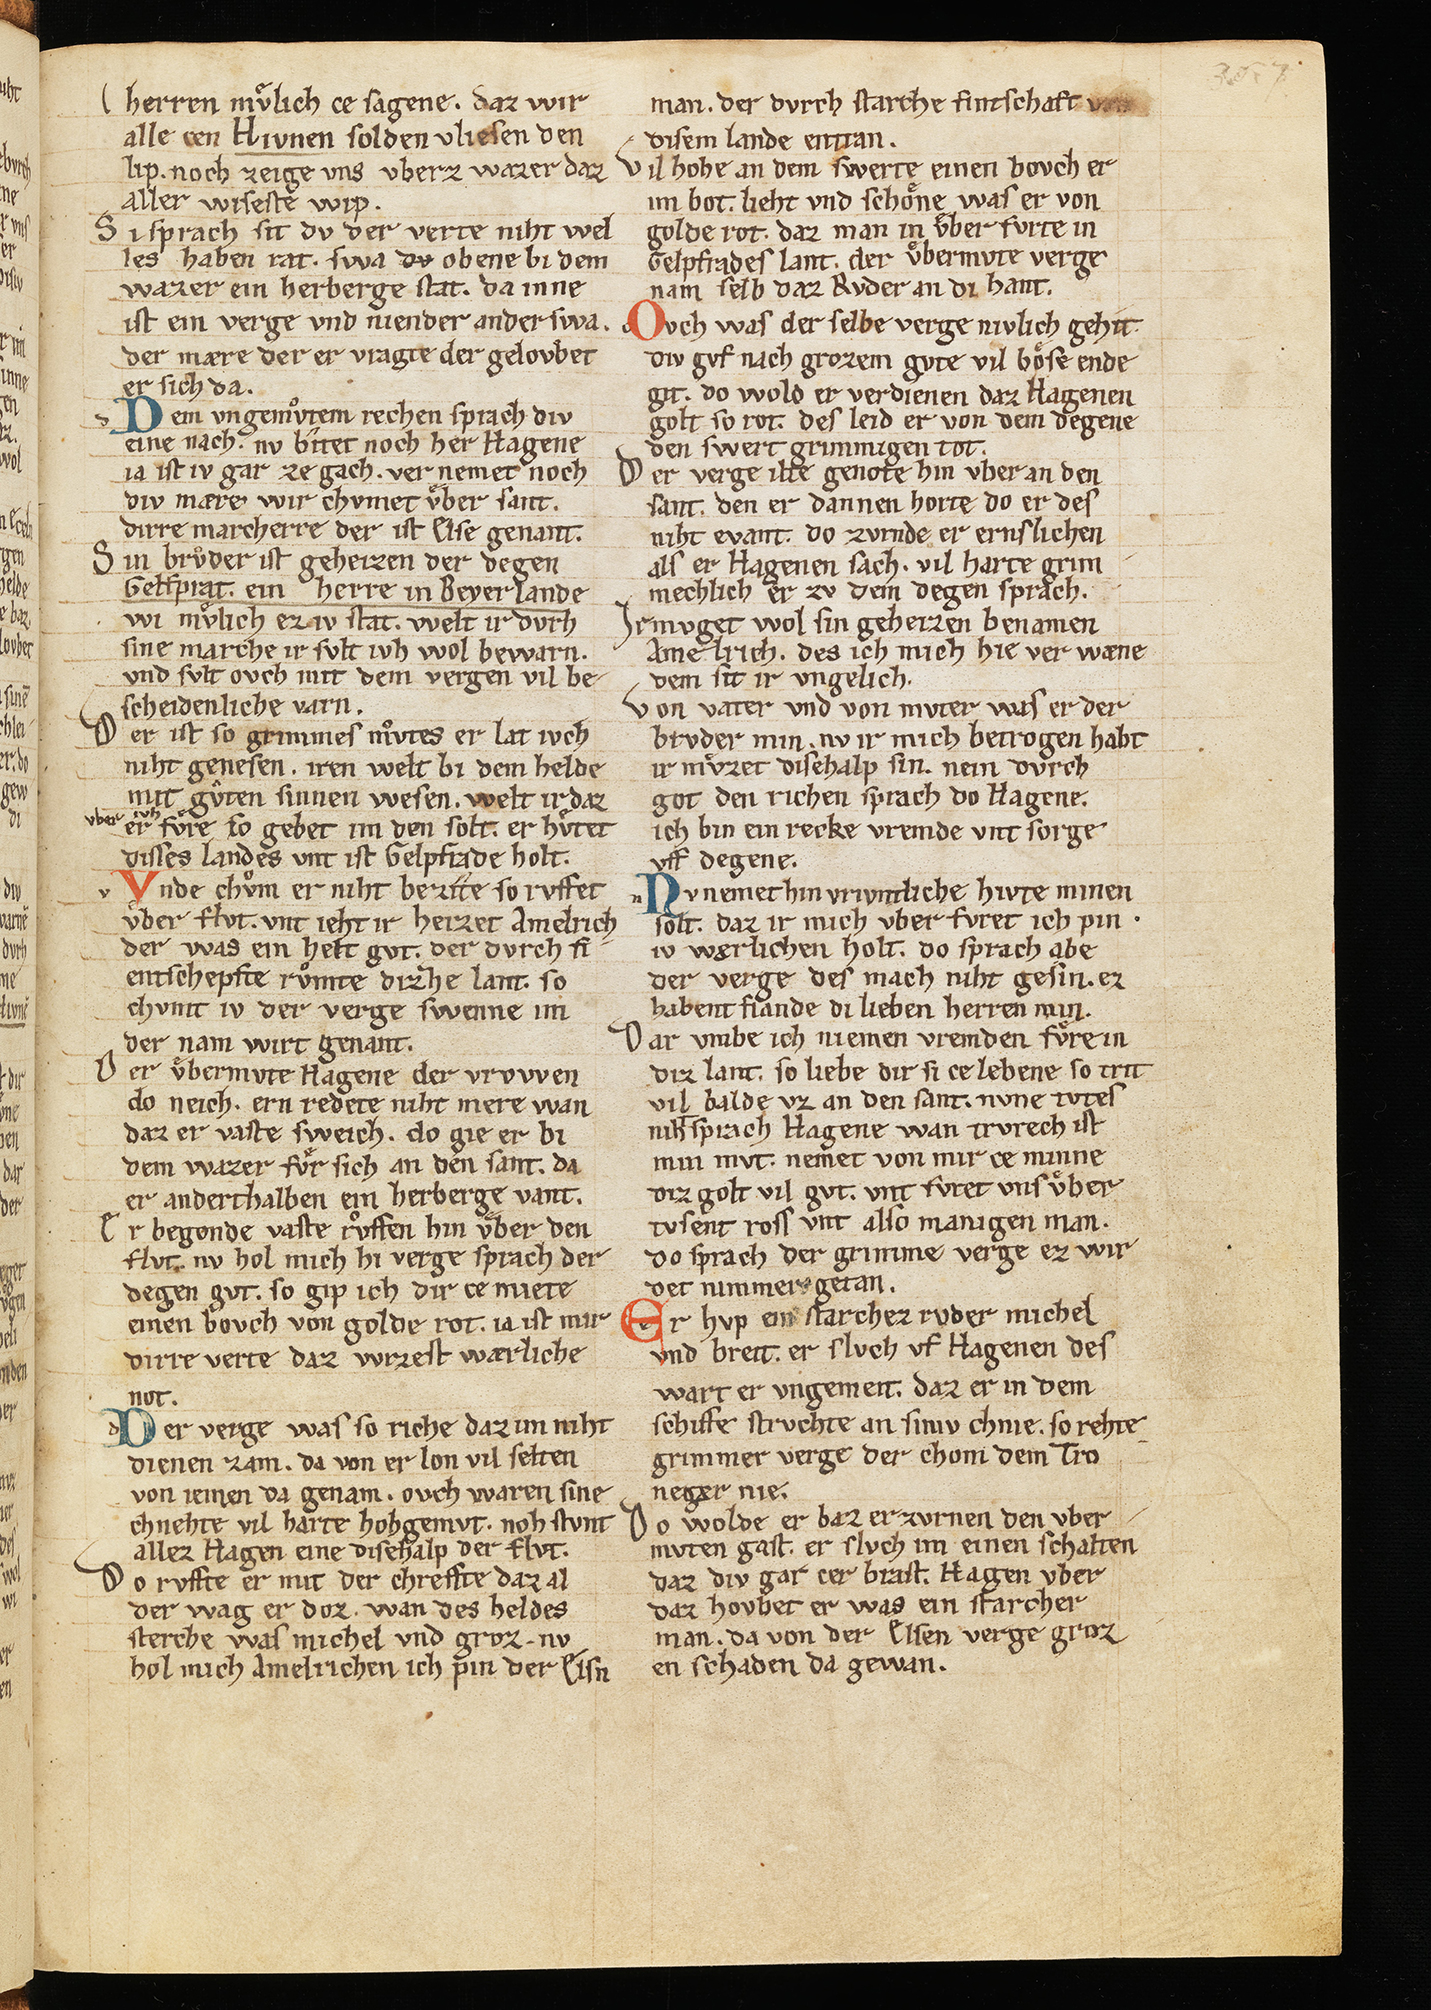 herren mv̊lich ce sagene. daz wir
alle cen Hivnen solden vliesen den
lip. noch zeige vns vberz wazer daz
aller wiseste wip.
Si sprach sit dv der verte niht wel
les haben rat. swa dv obene bi dem
wazer ein herberge stat. da inne
ist ein verge vnd niender anderswa.
der mære der er vragte der gelovbet
er sich da.
Dem vngemv̊tem rechen sprach div
eine nach. nv bitet noch her Hagene
ia ist iv gar ze gach. ver nemet noch
div mære wir chvmet v̊ber sant.
dirre marcherre der ist Else genant.
Sin brv̊der ist geheizen der degen
Gelfprat. ein herre in Beyerlande
wi mv̊lich ez iv stat. welt ir dvrh
sine marche ir svlt ivh wol bewarn.
vnd svlt ovch mit dem vergen vil be
scheidenliche varn.
Der ist so grimmes mv̊tes er lat ivch
niht genesen. iren welt bi dem helde
mit gv̊ten sinnen wesen. welt ir daz
er ivh vber fv̊re so gebet im den solt. er hv̊tet
disses landes vnt ist Gelpfrade holt.
Vnde chv̊m er niht bezite so rvffet
v̊ber flvt. vnt ieht ir heizet Amelrich
der was ein helt gvt. der dvrch fi
entschepfte rv̊mte dizhe lant. so
chvmt iv der verge swenne im
der nam wirt genant.
Der v̊bermvte Hagene der vrowen
do neich. ern redete niht mere wan
daz er vaste sweich. do gie er bi
dem wazer fv̊r sich an den sant. da
er anderthalben ein herberge vant.
Er begonde vaste rv̊ffen hin v̊ber den
flvt. nv hol mich hi verge sprach der
degen gvt. so gip ich dir ce miete
einen bovch von golde rot. ia ist mir
dirre verte daz wizest wærliche
not.
Der verge was so riche daz im niht
dienen zam. da von er lon vil selten
von iemen da genam. ovch waren sine
chnehte vil harte hohgemvt. noh stvnt
allez Hagen eine disehalp der flvt.
Do rvffte er mit der chreffte daz al
der wag er doz. wan des heldes
sterche was michel vnd groz. nv
hol mich Amelrichen ich pin der Elsn
man. der dvrch starche fintschaft von
disem lande entran.
Vil hohe an dem swerte einen bovch er
im bot. lieht vnd schóne was er von
golde rot. daz man in v̊ber fvrte in
Gelpfrades lant. der v̊bermvte verge
nam selb daz Rvder an di hant.
Ovch was der selbe verge nivlich gehit
div gvf nach grozem gvte vil bóse ende
git. do wold er verdienen daz Hagenen
golt so rot. des leid er von dem degene
den swert grimmigen tot.
Der verge ilte genote hin vber an den
sant. den er dannen horte do er des
niht evant. do zvrnde er ernslichen
als er Hagenen sach. vil harte grim
mechlich er zv dem degen sprach.
Ir mvget wol sin geheizen benamen
Amelrich. des ich mich hie ver wæne
dem sit ir vngelich.
Von vater vnd von mvter was er der
brvder min. nv ir mich betrogen habt
ir mv̊zet disehalp sin. nein dvrch
got den richen sprach do Hagene.
ich bin ein recke vremde vnt sorge
vff degene.
Nv nemet hin vrivntliche hivte minen
solt. daz ir mich vber fvret ich pin
iv wærlichen holt. do sprach abe
der verge des mach niht gesin. ez
habent fiande di lieben herren min.
Dar vmbe ich niemen vremden fv̊re in
diz lant. so liebe dir si ce lebene so trit
vil balde vz an den sant. nvne tvtes
niht sprach Hagene wan trvrech ist
min mvt. nemet von mir ce minne
diz golt vil gvt. vnt fvret vns v̊ber
tvsent ross vnt also manigen man.
do sprach der grimme verge ez wir
det nimmer getan.
Er hvp ein starchez rvder michel
vnd breit. er slvch vf Hagenen des
wart er vngemeit. daz er in dem
schiffe strvchte an siniv chnie. so rehte
grimmer verge der chom dem Tro
neger nie.
Do wolde er baz erzvrnen den vber
mvten gast. er slvch im einen schalten
daz div gar cer brast. Hagen vber
daz hovbet er was ein starcher
man. da von der Elsen verge groz
en schaden da gewan.